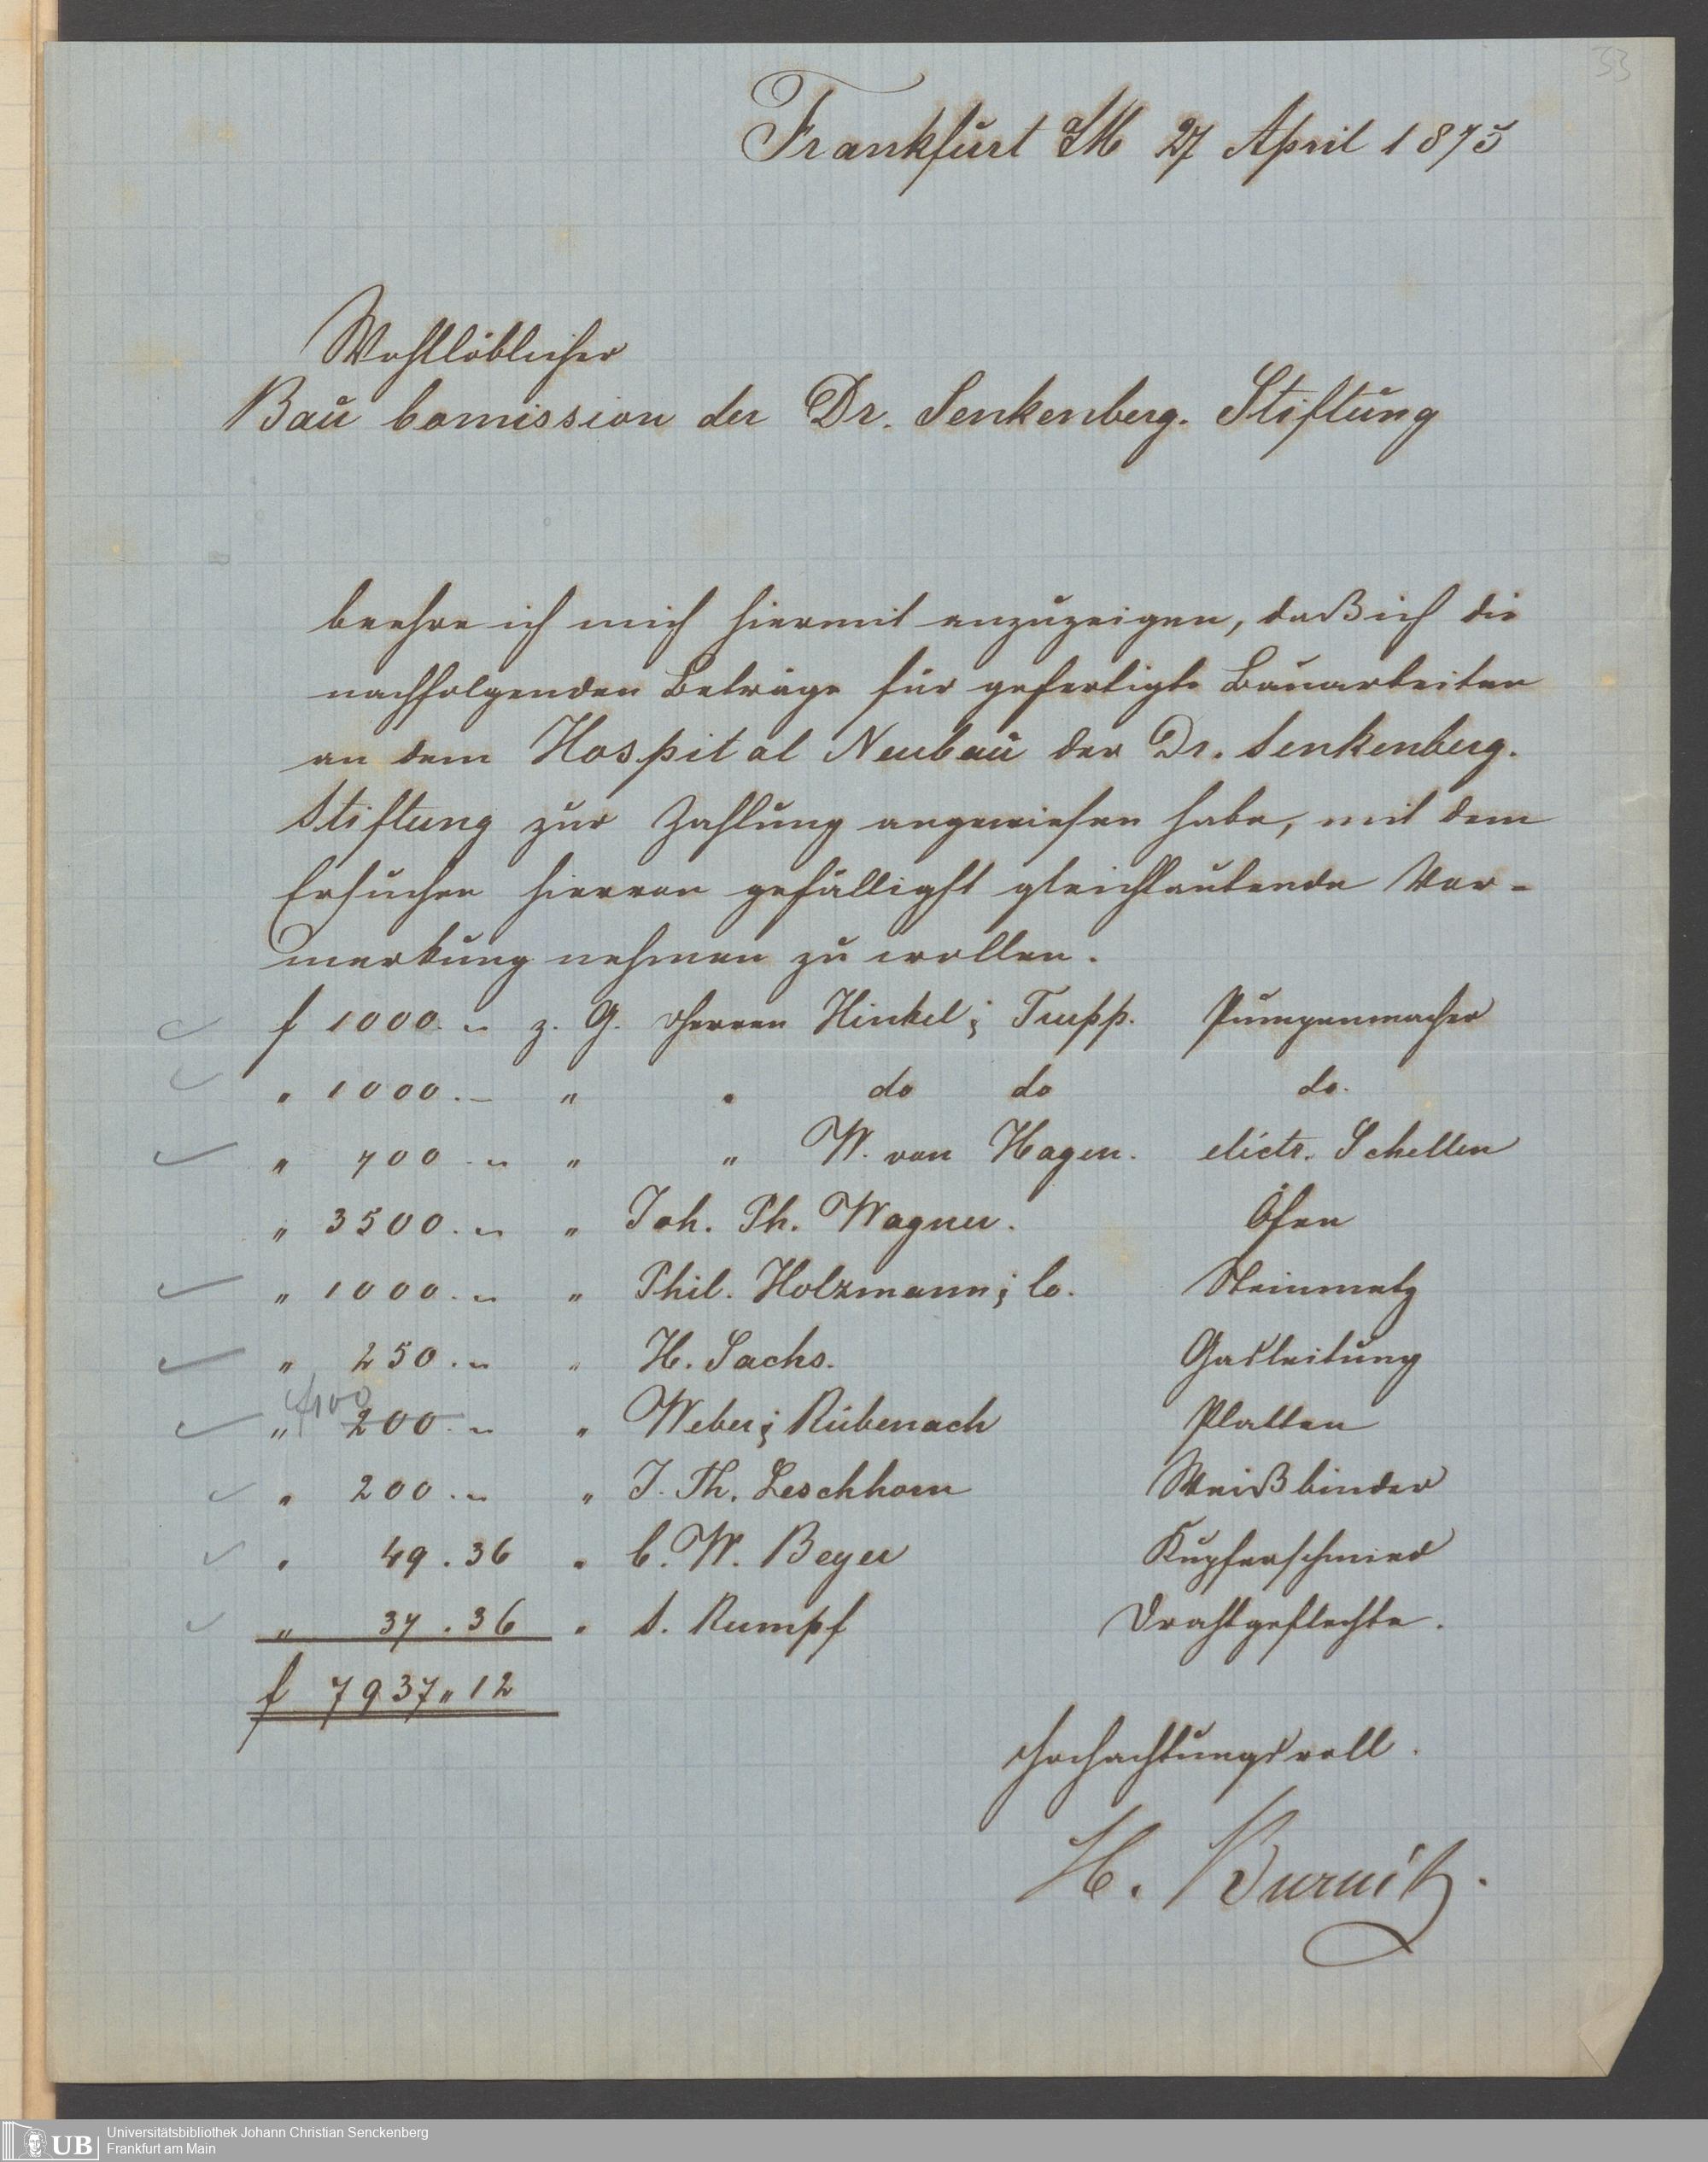 53
Frankfurt a/M 27 April 1875
Wohllöblicher
Bau Comission der Dr. Senkenberg. Stiftung
beehre ich mich hiermit anzuzeigen, daß ich die
nachfolgenden Beträge für gefertigte Bauarbeiten
an dem Hospital Neubau der Dr. Senkenberg.
Stiftung zur Zahlung angewiesen habe, mit dem
Ersuchen hiervon gefälligst gleichlautende Vor-
merkung nehmen zu wollen.
f 1000. „ z. G. Herren Hinkel & Trupp. Pumpenmacher
" 1000. – " " do do do.
" 700 . „ " " W. von Hagen. electr. Schellen
" 3500. „ " Joh. Ph. Wagner. Öfen
" 1000. „ " Phil. Holzmann & Co. Steinmetz
" 250. „ " H. Sachs. Gasleitung
400
" 200. „ " Weber & Rübenach Platten
" 200. „ " J. Th. Leschhorn Weißbinder
" 49. 36 " C. W. Beyer Kupferschmied
" 37. 36 " A. Rumpf Drahtgeflechte.
f 7937„12
Hochachtungsvoll.
H. Burnitz.
UB Universitätsbibliothek Johann Christian Senckenberg
Frankfurt am Main